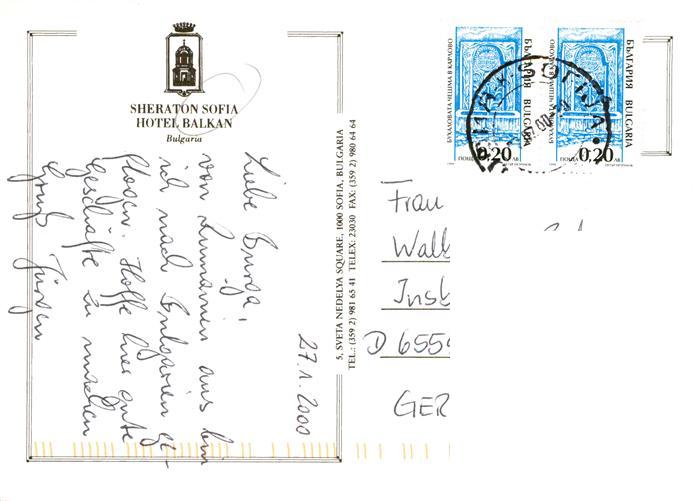 SHERATON SOFIA
HOTEL BALKAN
Bulgaria
БЪЛГАРИЯ BULGARIA
БУХАЛОВАТА ЧЕШМА В КАРЛОВО
ПОЩА 0,20 ЛВ
БЪЛГАРИЯ BULGARIA
ПОЩА 0,20 ЛВ
5, SVETA NEDELYA SQUARE, 1000 SOFIA, BULGARIA
TEL.: (359 2) 981 65 41 TELEX: 23030 FAX: (359 2) 980 64 64
27.1.2000
Liebe
von Rumänien aus bin
ich nach Bulgarien ge-
flogen. Hoffe hier gute
Geschäfte zu machen
Gruß Jürgen
Frau
Walb
Inst
D 6559
GER